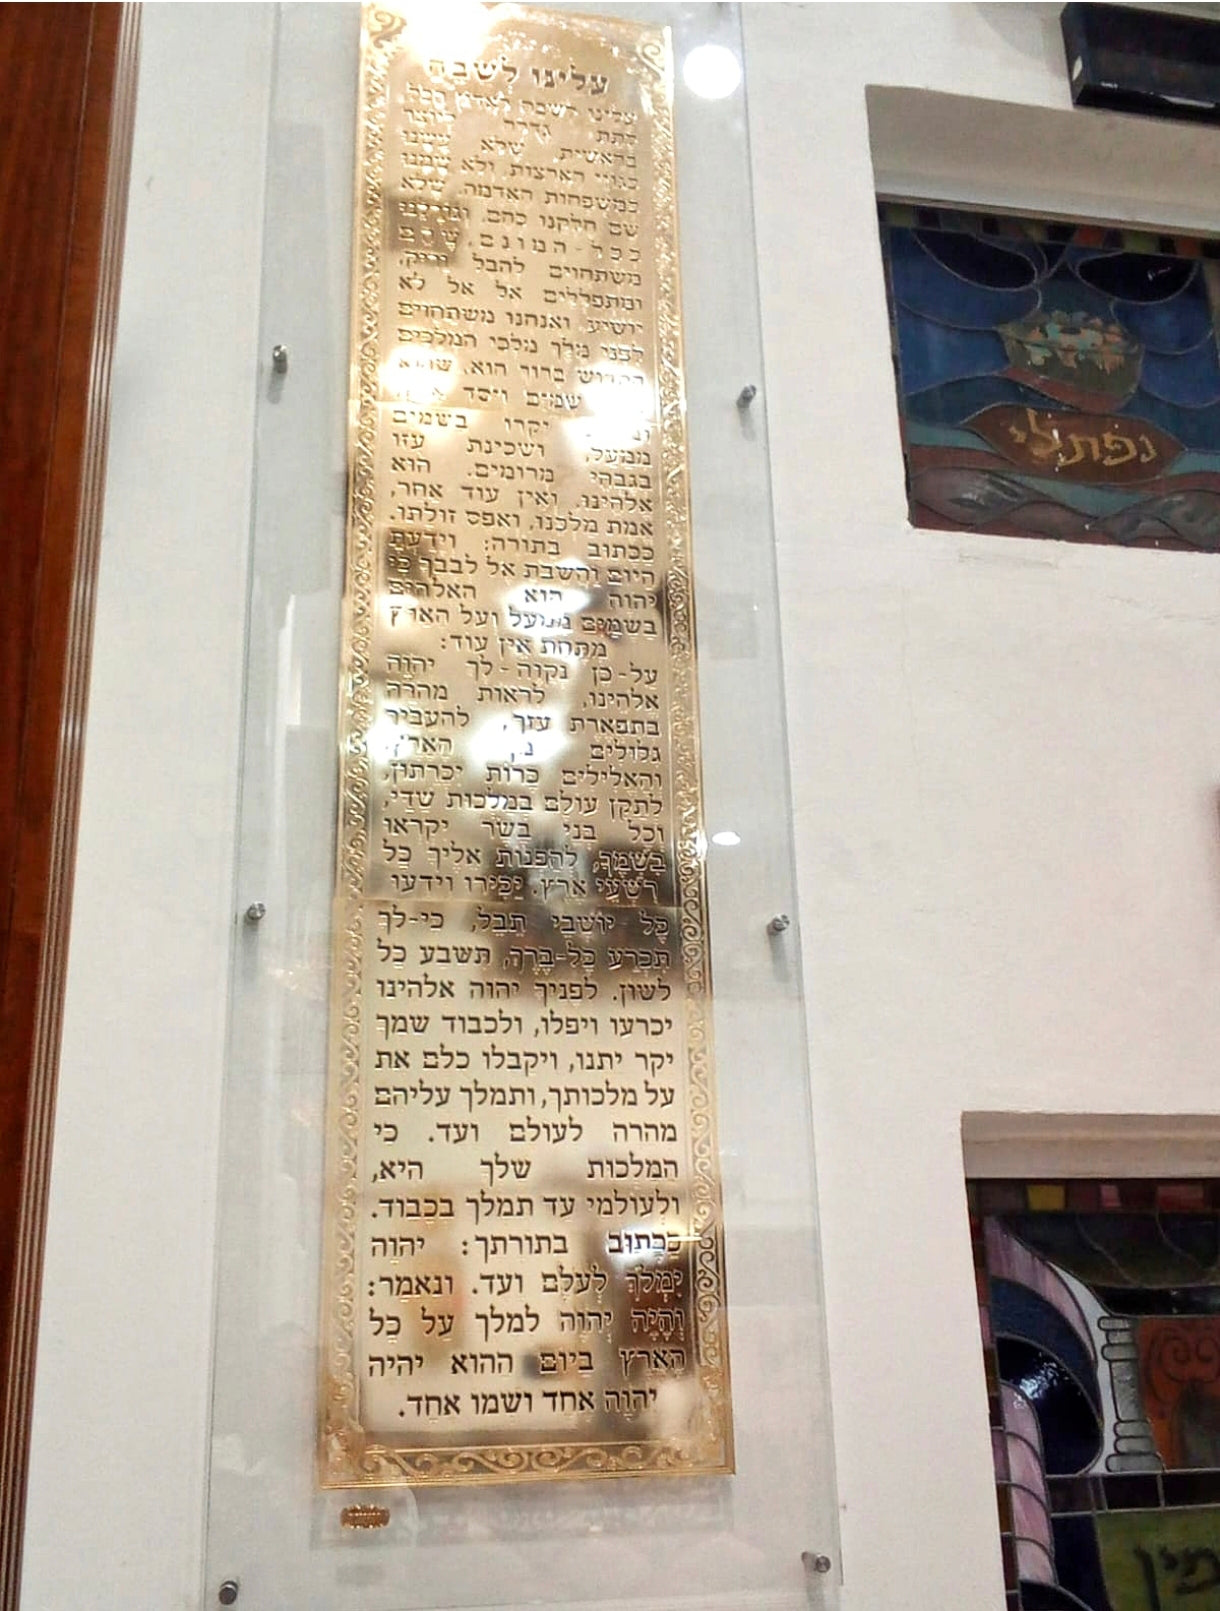 עלינו לשבח
עלינו לשבח לאדון הכל
לתת גדלה ליוצר
בראשית, שלא עשנו
כגויי הארצות, ולא שמנו
כמשפחות האדמה. שלא
שם חלקנו כהם, וגורלנו
ככל-המונם. שהם
משתחוים להבל וריק,
ומתפללים אל אל לא
יושיע. ואנחנו משתחוים
לפני מלך מלכי המלכים
הקדוש ברוך הוא. שהוא
שמים ויסד
יקרו בשמים
ממעל, ושכינת עזו
בגבהי מרומים. הוא
אלהינו, ואין עוד אחר,
אמת מלכנו, ואפס זולתו.
ככתוב בתורה: וידעת
היום והשבת אל לבבך כי
יהוה הוא האלהים
בשמים ממעל ועל הארץ
מתחת אין עוד:
על-כן נקוה-לך יהוה
אלהינו, לראות מהרה
בתפארת עזך, להעביר
גלולים מן הארץ
והאלילים כרות יכרתון,
לתקן עולם במלכות שדי,
וכל בני בשר יקראו
בשמך, להפנות אליך כל
רשעי ארץ. יכירו וידעו
כל-יושבי תבל, כי-לך
תכרע כל-ברך, תשבע כל
לשון. לפניך יהוה אלהינו
יכרעו ויפלו, ולכבוד שמך
יקר יתנו, ויקבלו כלם את
על מלכותך, ותמלך עליהם
מהרה לעולם ועד. כי
המלכות שלך היא,
ולעולמי עד תמלך בכבוד.
ככתוב בתורתך: יהוה
ימלך לעלם ועד. ונאמר:
והיה יהוה למלך על כל
הארץ ביום ההוא יהיה
יהוה אחד ושמו אחד.
נפתלי